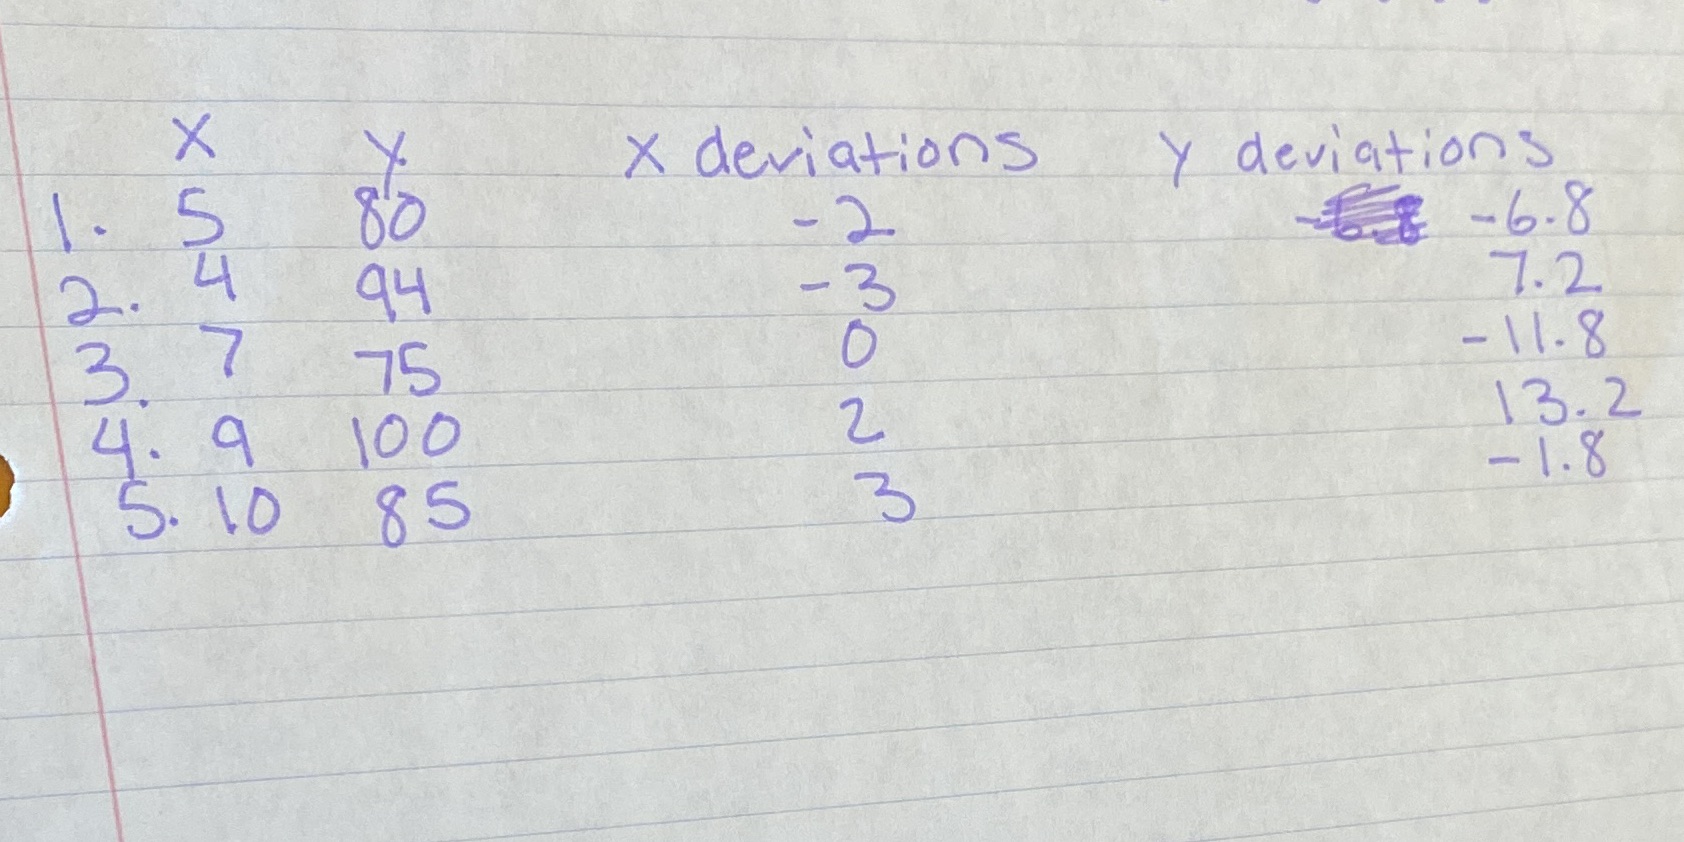 X y x deviations y deviations
1. 5 80 -2 -6.8
2. 4 94 -3 7.2
3. 7 75 0 -11.8
4. 9 100 2 13.2
5. 10 85 3 -1.8